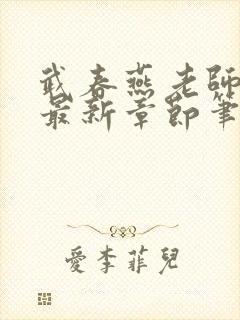 武春燕老師
最新章節筆
愛李菲兒